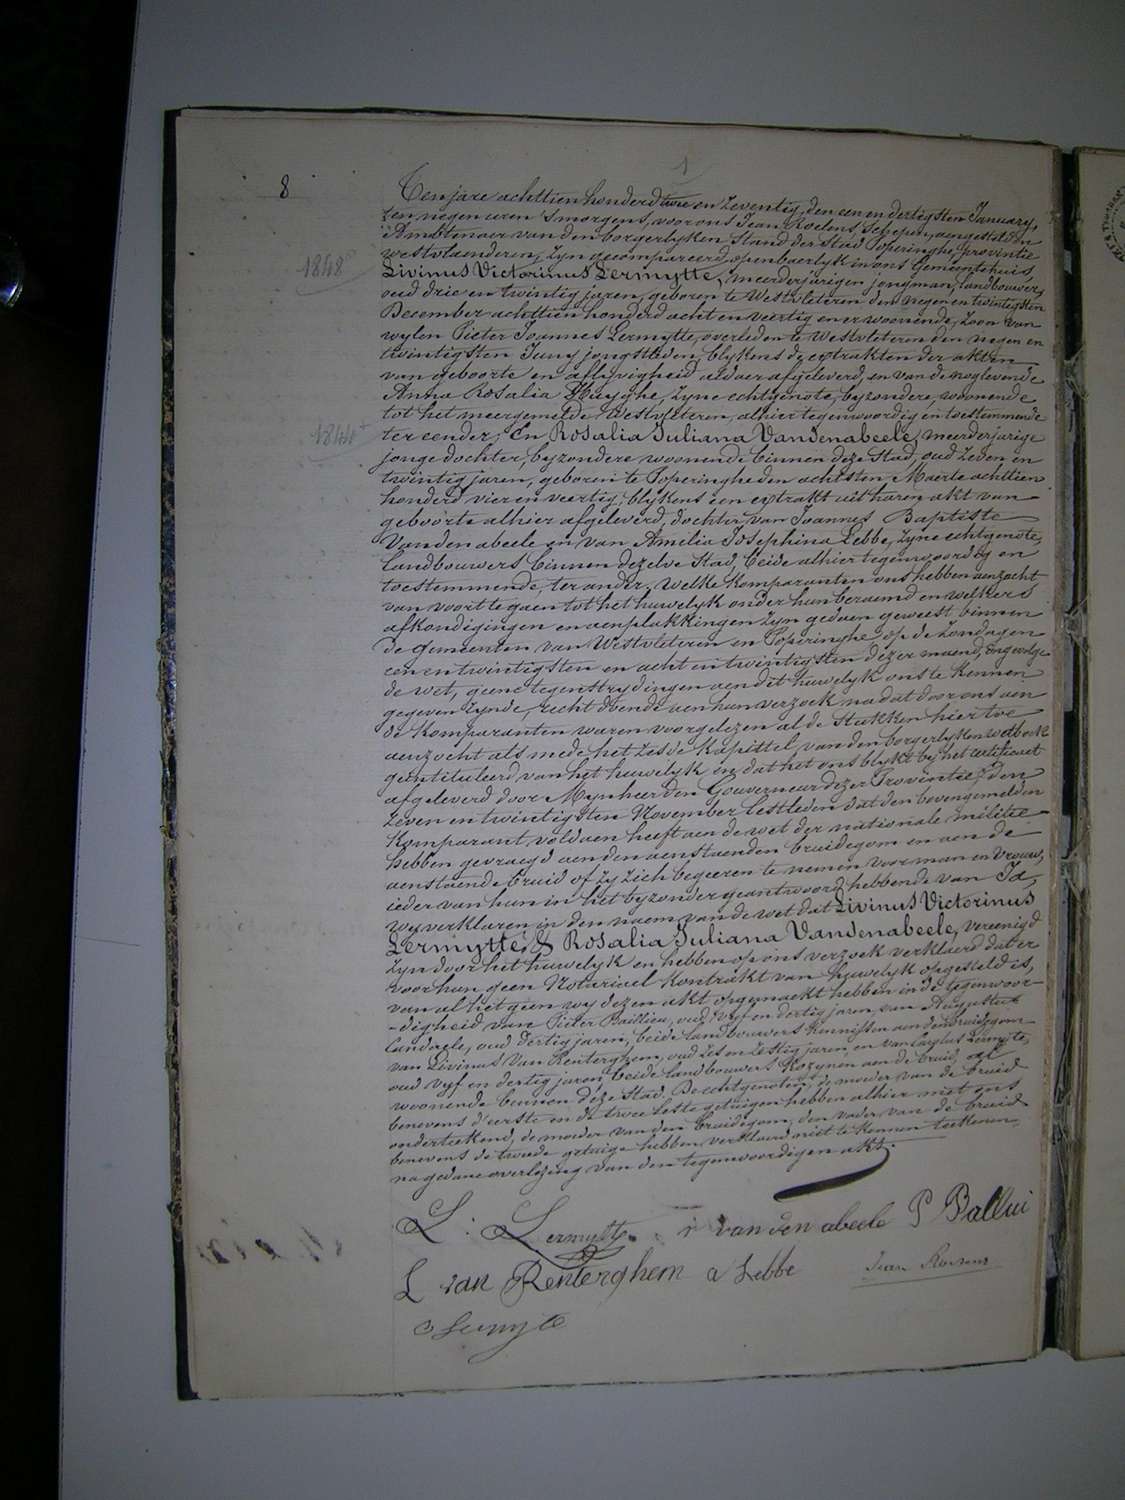 1
8
Ten jare achttien honderd twee en zeventig, den een en dertigsten January,
ten negen uren 's morgens, voor ons Jean Roelens, Schepen, aengestelden
Ambtenaer van den borgerlyken Stand der Stad Poperinghe, provintie
westvlaenderen, zyn gecompareerd openbaerlyk in ons Gemeentehuis
1848
Livinus Victorinus Lermytte, meerderjarigen jongman, landbouwer,
oud drie en twintig jaren, geboren te Westvleteren den negen en twintigsten
December achttien honderd acht en veertig en er woonende, zoon van
wylen Pieter Joannes Lermytte, overleden te Westvleteren den negen en
twintigsten Juny jongstleden, blykens de extrakten der akten
van geboorte en aflyvigheid aldaer afgeleverd, en van de noglevende
Anna Rosalia Huyghe, zyne echtgenote, byzondere, woonende
tot het meergemelde Westvleteren, alhier tegenwoordig en toestemmende
1844
ter eender; En Rosalia Juliana Vandenabeele, meerderjarige
jonge dochter, byzondere woonende binnen deze Stad, oud zeven en
twintig jaren, geboren te Poperinghe den achtsten Maerte achttien
honderd vier en veertig, blykens een extrakt uit haren akt van
geboorte alhier afgeleverd, dochter van Joannes Baptiste
Vandenabeele en van Amelia Josephina Lebbe, zyne echtgenote,
landbouwers binnen dezelve Stad, beide alhier tegenwoordig en
toestemmende, ter ander; welke komparanten ons hebben aenzocht
van voort te gaen tot het huwelyk onder hun beraemd en welkers
afkondigingen en aenplakkingen zyn gedaen geweest binnen
de gemeenten van Westvleteren en Poperinghe, op de Zondagen
een en twintigsten en acht en twintigsten dezer maend, ingevolge
de wet, geene tegenstrydingen aen dit huwelyk ons te kennen
gegeven zynde, recht doende aen hun verzoek na dat door ons aen
de komparanten waren voorgelezen al de stukken hier toe
aenzocht als mede het zesde kapittel van den borgerlyken wetboek
geintituleerd van het huwelyk en dat het ons blykt by het certificaet
afgeleverd door Mynheer den Gouverneur dezer Provintie, den
zeven en twintigsten November lestleden dat den bovengemelden
Komparant voldaen heeft aen de wet der nationale militie
hebben gevraegd aen den aenstaenden bruidegom en aen de
aenstaende bruid of zy zich begeeren te nemen voor man en vrouw,
ieder van hun in het byzonder geantwoord hebbende van Ja,
wy verklaren in den naem van de wet dat Livinus Victorinus
Lermytte, & Rosalia Juliana Vandenabeele, vereenigd
zyn door het huwelyk en hebben op ons verzoek verklaerd dat er
voor hun geen Notariael kontrakt van huwelyk opgesteld is,
van al het geen wy dezen akt opgemaekt hebben in de tegenwoor-
-digheid van Pieter Baillieu, oud vyf en dertig jaren, van Augustus
oud dertig jaren, beide landbouwers kennissen aen den bruidegom
van Livinus Van Renterghem, oud zes en zestig jaren, en van Lermytte,
oud vyf en dertig jaren, beide landbouwers Kozynen aen de bruid, al
woonende binnen deze Stad. De echtgenoten, de moeder van de bruid
benevens d'eerste en de twee leste getuigen hebben alhier met ons
onderteekend, de moeder van den bruidegom, den vader van de bruid
benevens de tweede getuige hebben verklaerd niet te kennen teekenen
na gedane overlezing van den tegenwoordigen akt.
L: Lermytte r van den abeele P Ballui
L van Renterghem a Lebbe Jean Roelens